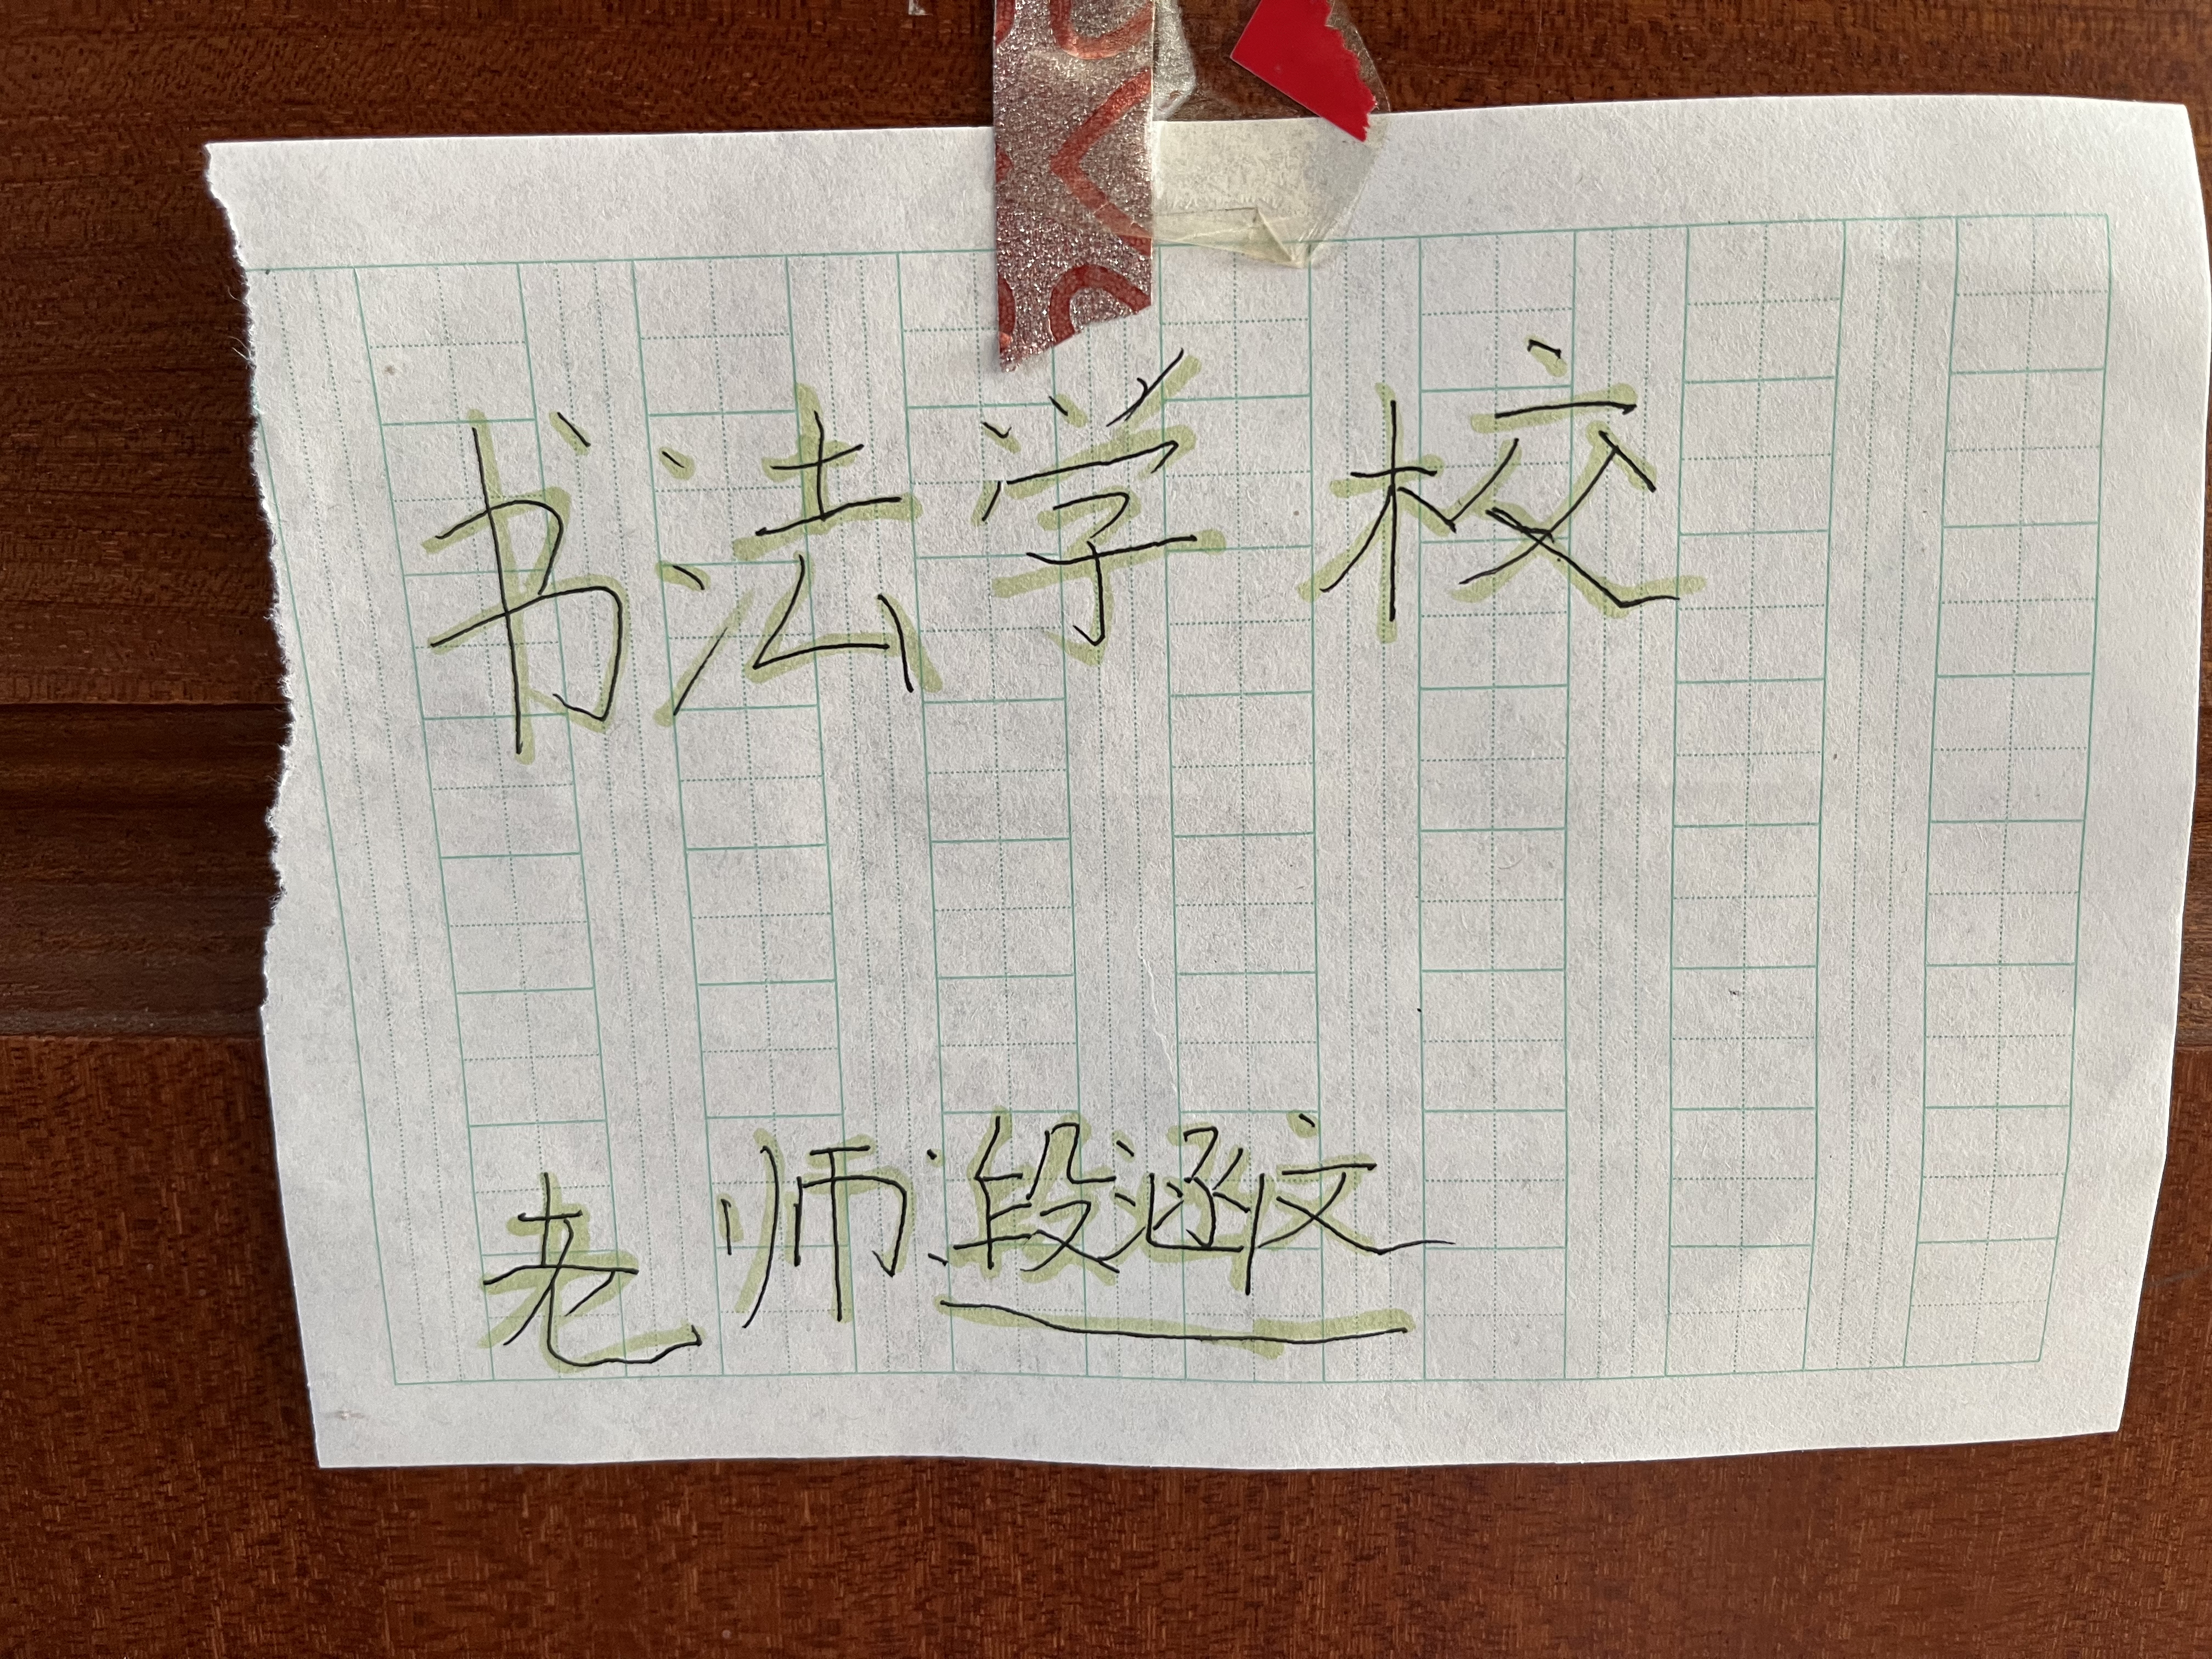 书法学校
老师:段涵文